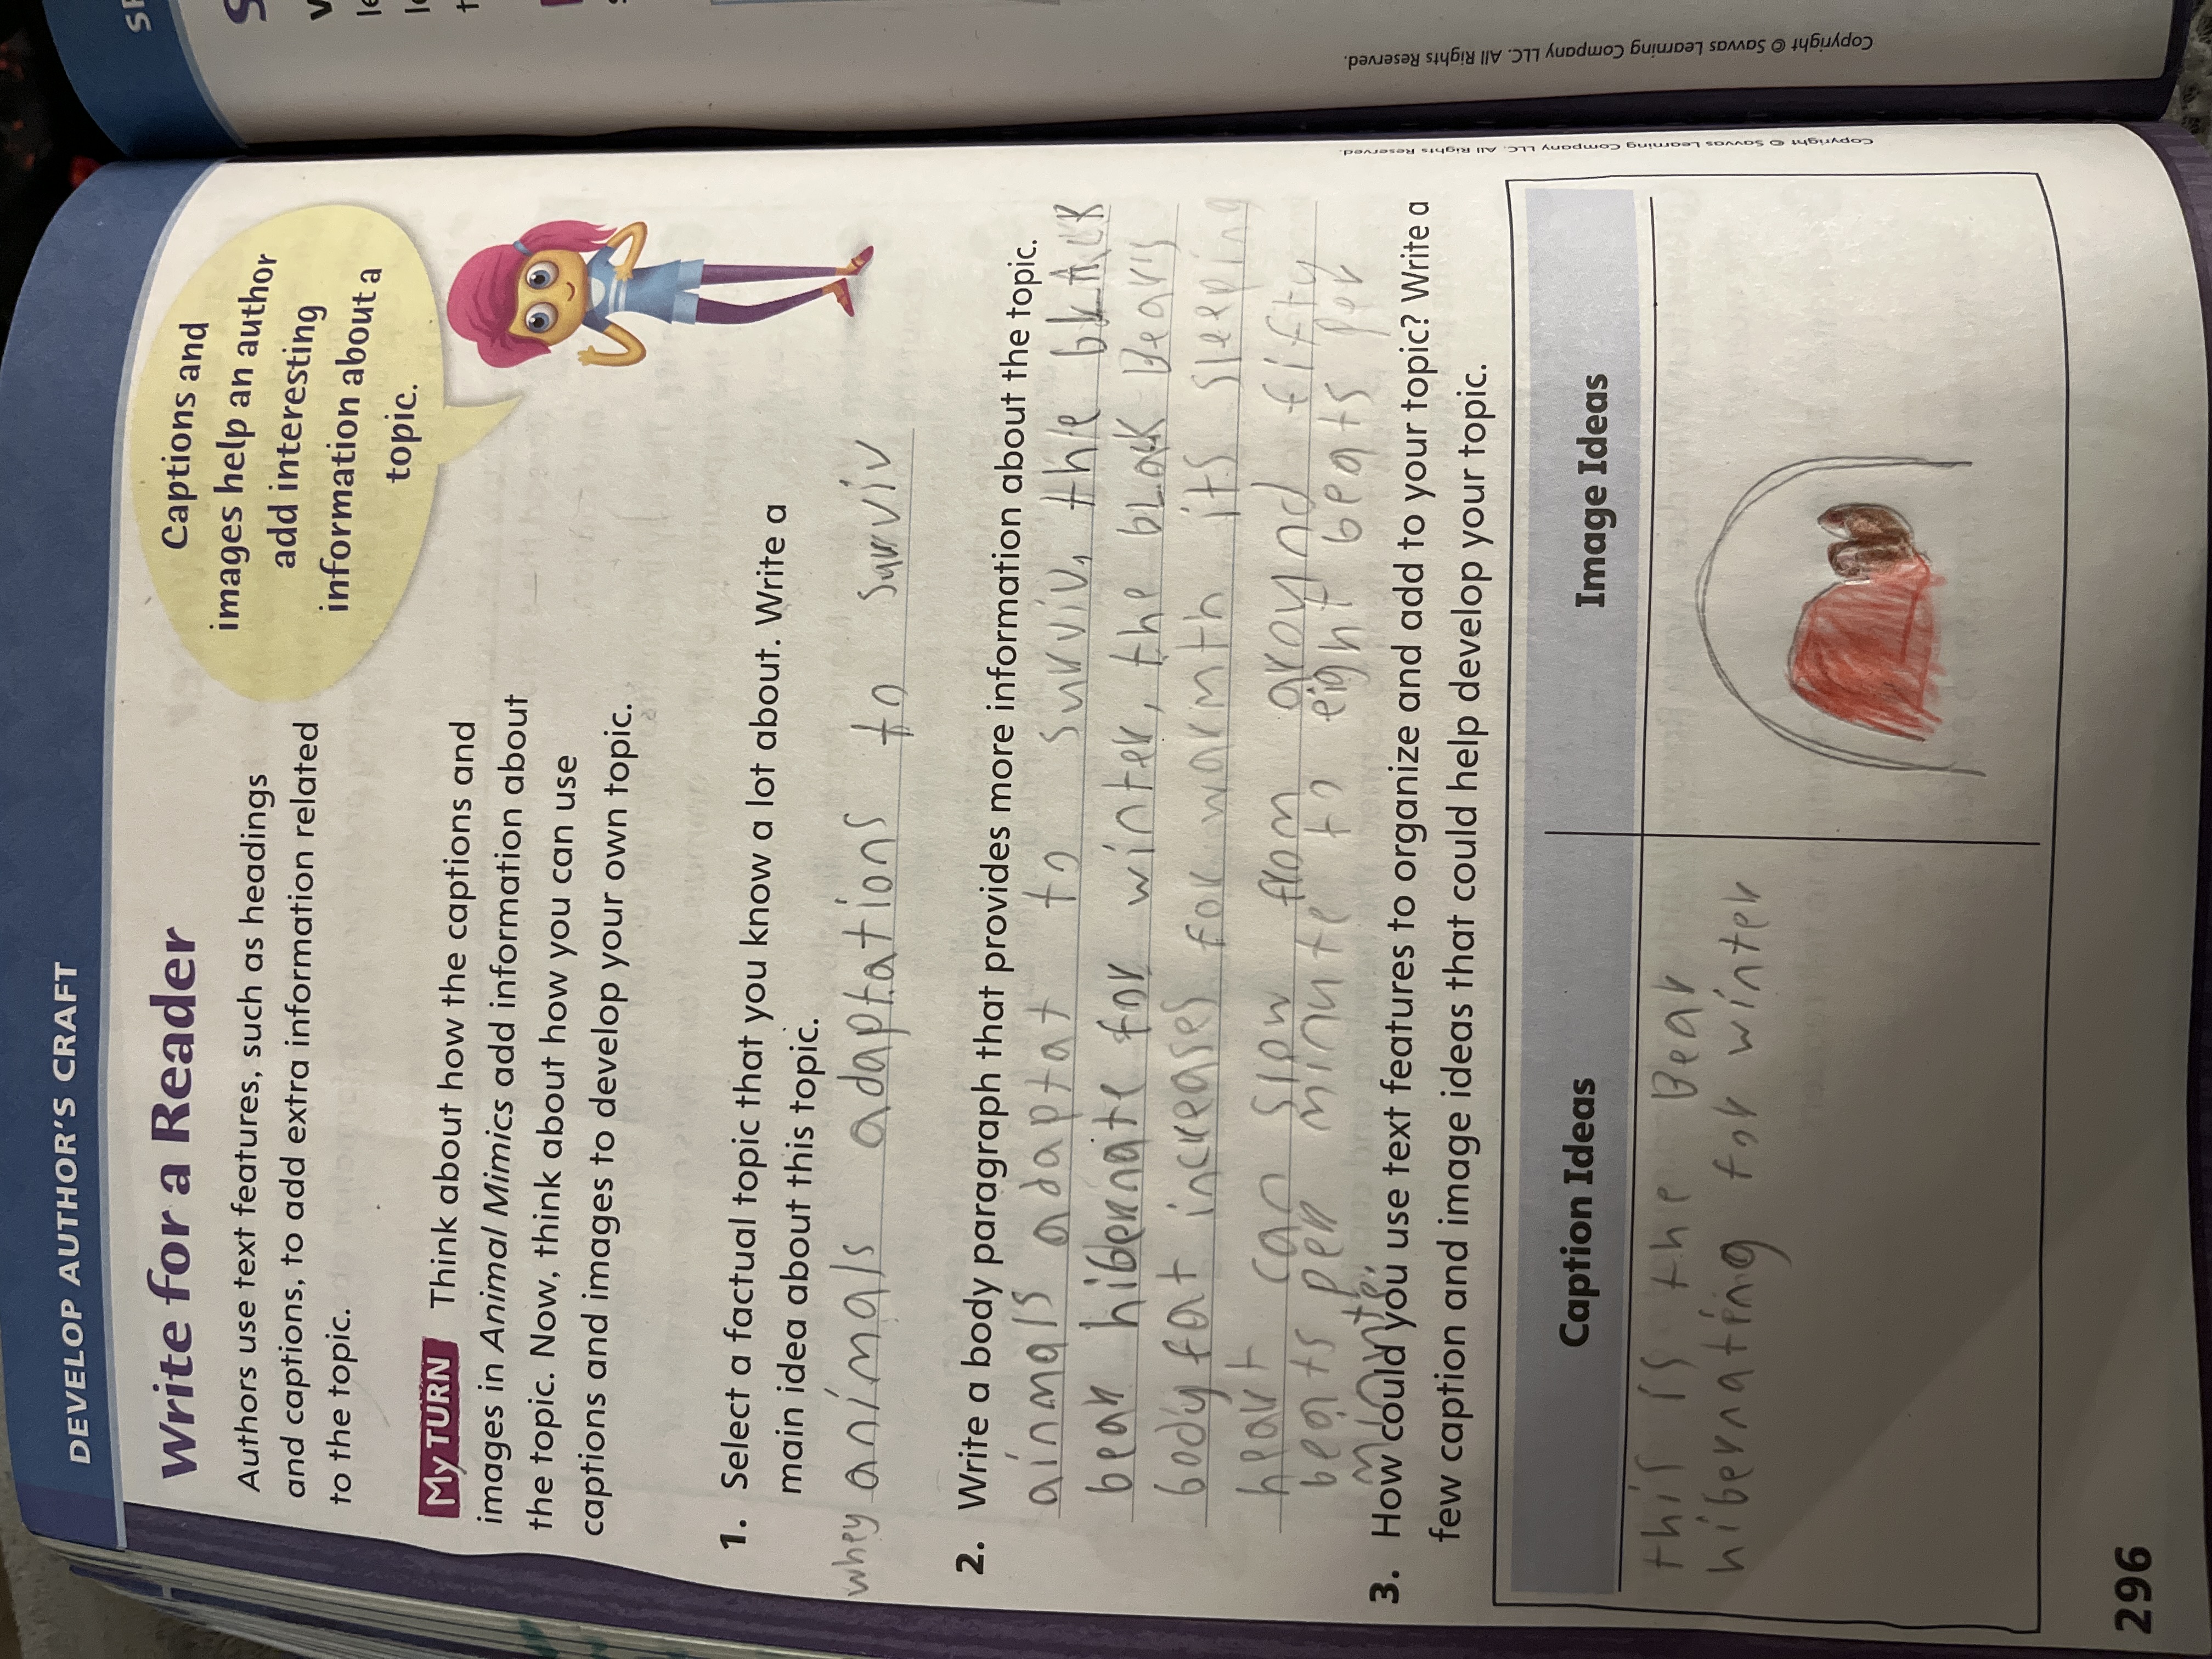 DEVELOP AUTHOR'S CRAFT
Write for a Reader
Authors use text features, such as headings
and captions, to add extra information related
to the topic.
Captions and
images help an author
add interesting
information about a
topic.
My TURN Think about how the captions and
images in Animal Mimics add information about
the topic. Now, think about how you can use
captions and images to develop your own topic.
1. Select a factual topic that you know a lot about. Write a
main idea about this topic.
whey animals adaptations to surviv
2. Write a body paragraph that provides more information about the topic.
ainmals adaptat to surviv, the
bear hibernate for winter, the black Bears
body fat increases for warmth its sleeping
heart can slow from around fifty
beats per minute to eight beats per
minute.
3. How could you use text features to organize and add to your topic? Write a
few caption and image ideas that could help develop your topic.
Caption Ideas
Image Ideas
this is the Bear
hibernating for winter
296
Copyright © Savvas Learning Company LLC. All Rights Reserved.
Copyright © Savvas Learning Company LLC. All Rights Reserved.